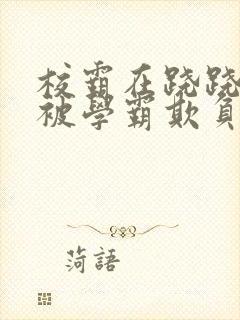 校霸在跷跷
被學霸欺負
菏語